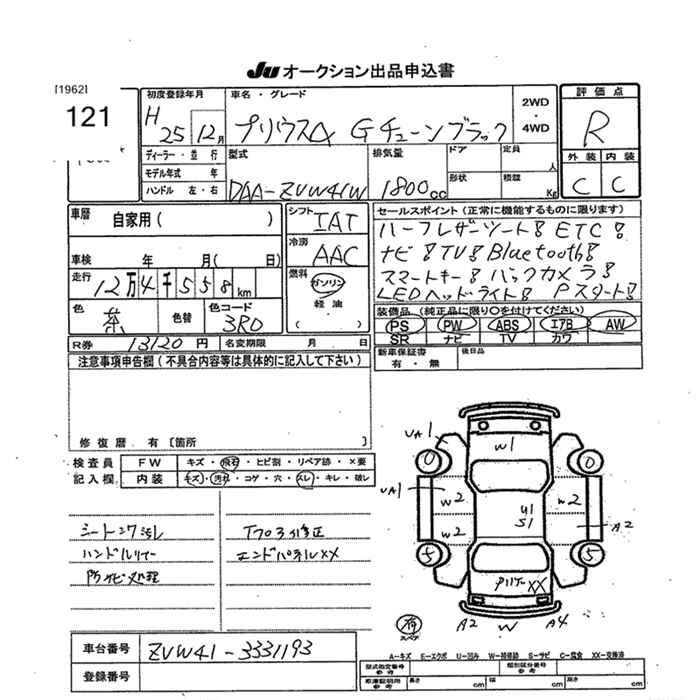 JU オークション出品申込書
[1962]
121
初度登録年月
H 25 12月
車名・グレード
プリウスα Gチューンブラック
2WD
・
4WD
評価点
R
外装 内装
C C
ディーラー・並行
モデル年式 年
ハンドル 左・右
型式
DAA-ZVW41W
排気量
1800cc
ドア
形状
定員
人
積載
Kg
車歴
自家用( )
車検 年 月( 日)
走行
12万4千558km
色
茶
色替
色コード
3R0
シフト
IAT
冷房
AAC
燃料
ガソリン
・
軽油
( )
セールスポイント(正常に機能するものに限ります)
ハーフレザーシート! ETC!
ナビ! TV! Bluetooth!
スマートキー! バックカメラ!
LEDヘッドライト! Pスタート!
装備品(純正品に限り○を付けてください)
PS PW ABS エアB AW
SR ナビ TV カワ
新車保証書
有・無
後日品
R券 13120円 名変期限 月 日
注意事項申告欄(不具合内容等は具体的に記入して下さい)
修復歴 有[箇所 ]
検査員
記入欄
FW キズ・飛石・ヒビ割・リペア跡・×要
内装 キズ・汚れ・コゲ・穴・スレ・キレ・破レ
シート シワ汚レ
ハンドル
防サビ処理
修正
エンドパネルXX
UA1
W1
0 0
UA1
W2 W2
W2
U1
S1
A2
5 5
XX
有
スペア
A2 W A4
A-キズ E-エクボ U-凹み W-補修跡 S-サビ C-腐食 XX-交換済
車台番号 ZVW41-3331193
登録番号
型式指定番号 類別区分番号
車庫証明用
参考
長さ cm 幅 cm 高さ cm